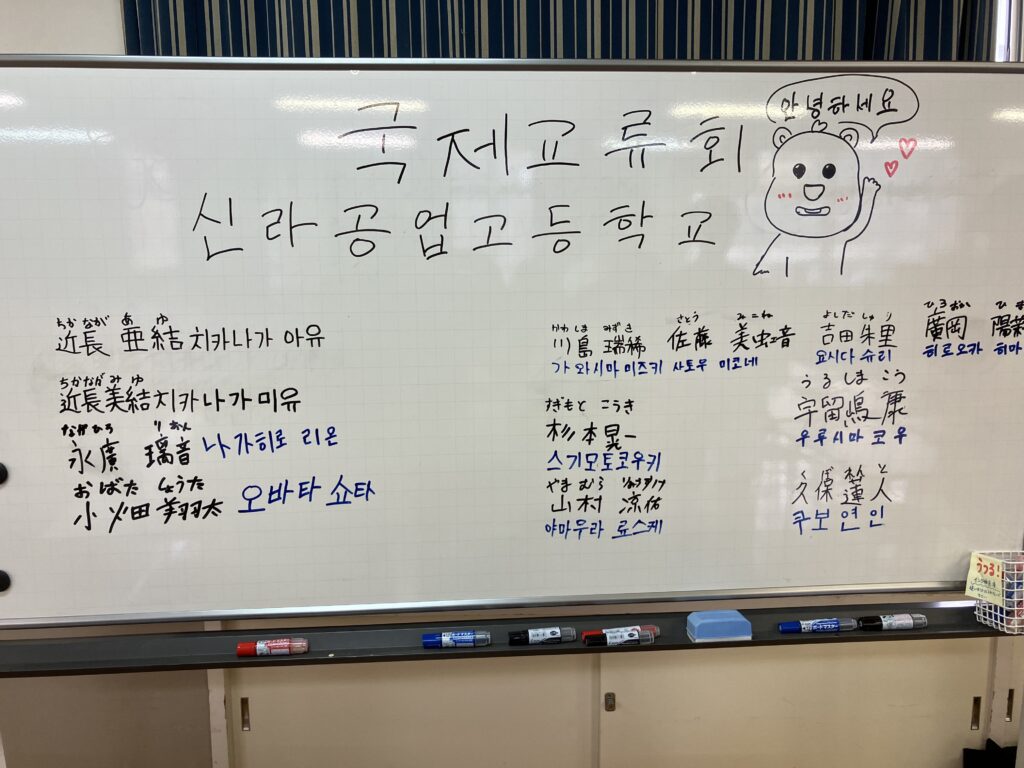 국제교류회
안녕하세요
신라공업고등학교
ちかなが あ ゆ
近長 亜結 치카나가 아유
ちかながみゆ
近長美結 치카나가미유
ながひろ りおん
永廣 璃音 나가히로 리온
おばた しょうた
小畑 翔太 오바타 쇼타
かわしま みずき
川島 瑞稀
가와시마 미즈키
さとう みこね
佐藤
사토우 미코네
よしだ しゅり
吉田 朱里
요시다 슈리
ひろおか ひま
廣岡 陽
히로오카 히마
すぎもと こうき
杉本晃一
스기모토코우키
うるしま こう
宇留嶋 康
우루시마 코우
やまむら りょうすけ
山村 涼佑
야마우라 료스케
くぼ と
久保 蓮人
쿠보 연인
うつる!